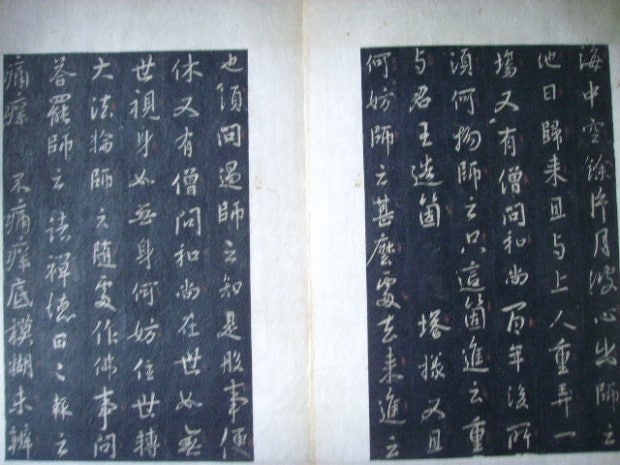 海中空餘片月波心出師云
他日歸来且与上人重弄一
場又有僧問和尚百年後所
須何物師云只這箇進云重
与君王造箇 塔樣又且
何妨師云甚麼處去来進云
也須問過師云知是般事便
休又有僧問和尚在世如無
世視身如無身何妨住世轉
大法輪師云隨處作佛事問
答罷師云諸禪德日〻報云
痛癢 不痛癢底模糊未辨